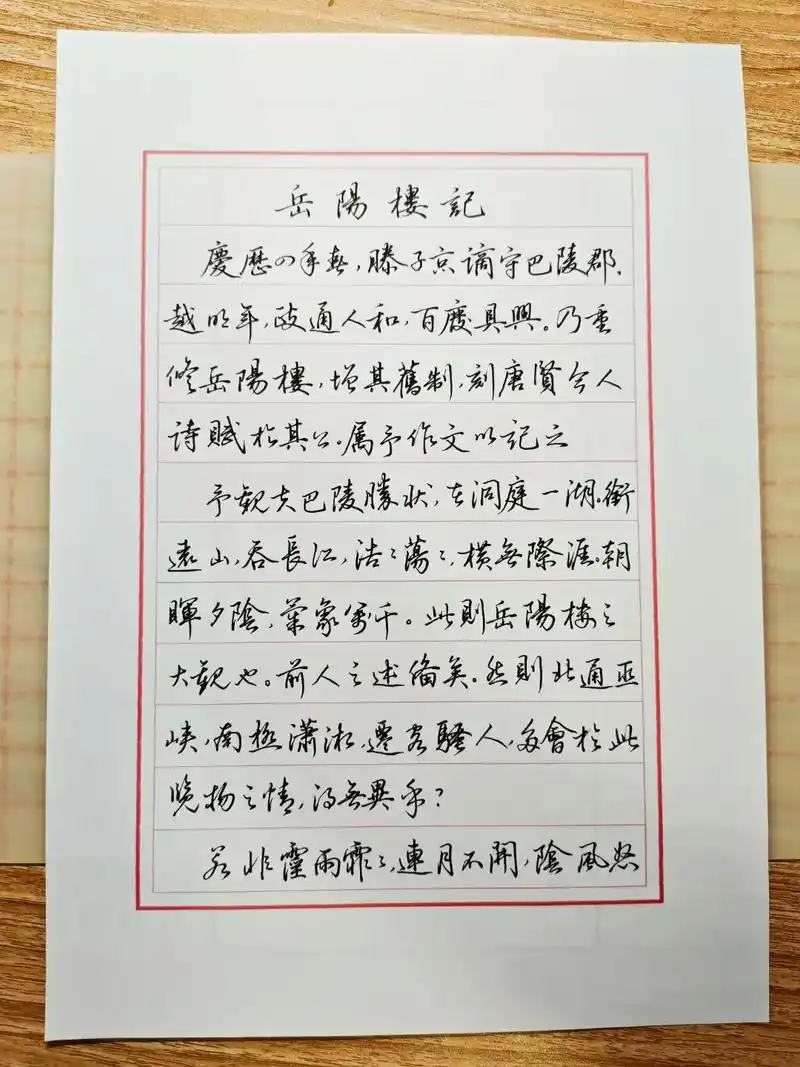 岳陽樓記
慶歷四年春,滕子京謫守巴陵郡.
越明年,政通人和,百廢具興。乃重
修岳陽樓,增其舊制,刻唐賢今人
詩賦於其上。屬予作文以記之
予觀夫巴陵勝狀,在洞庭一湖。銜
遠山,吞長江,浩〻蕩〻,橫無際涯。朝
暉夕陰,氣象萬千。此則岳陽樓之
大觀也。前人之述備矣。然則北通巫
峽,南極瀟湘,遷客騷人,多會於此
覽物之情,得無異乎?
若非霪雨霏〻,連月不開,陰風怒